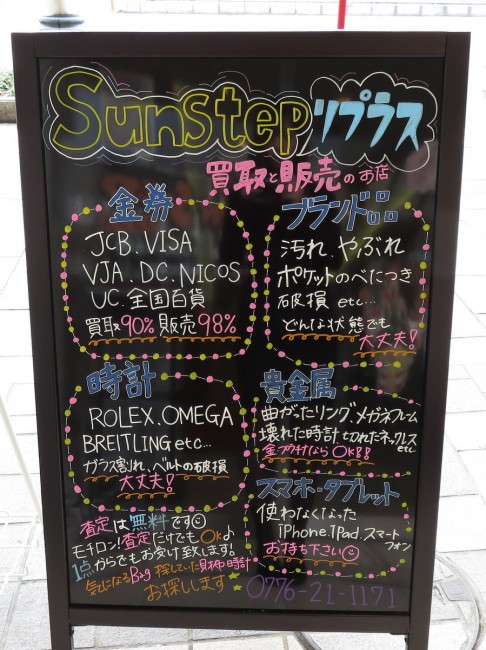 Sunstep リプラス
買取と販売のお店
金券
JCB.VISA
VJA.DC.NICOS
UC.全国百貨
買取90% 販売98%
ブランド品
汚れ、やぶれ
ポケットのべたつき
破損 etc...
どんな状態でも
大丈夫!
時計
ROLEX.OMEGA
BREITLING etc...
ガラス割れ、ベルトの破損
大丈夫!
貴金属
曲がったリング、メガネフレーム
壊れた時計 切れたネックレス
etc
金・プラ付なら OK!!
スマホ・タブレット
使わなくなった
iPhone.iPad.スマート
フォン
お持ち下さい
査定は無料です
モチロン!査定だけでもOK♪
1点からでもお受け致します!
気になるBag 探していた財布や時計
お探しします★
0776-21-1171